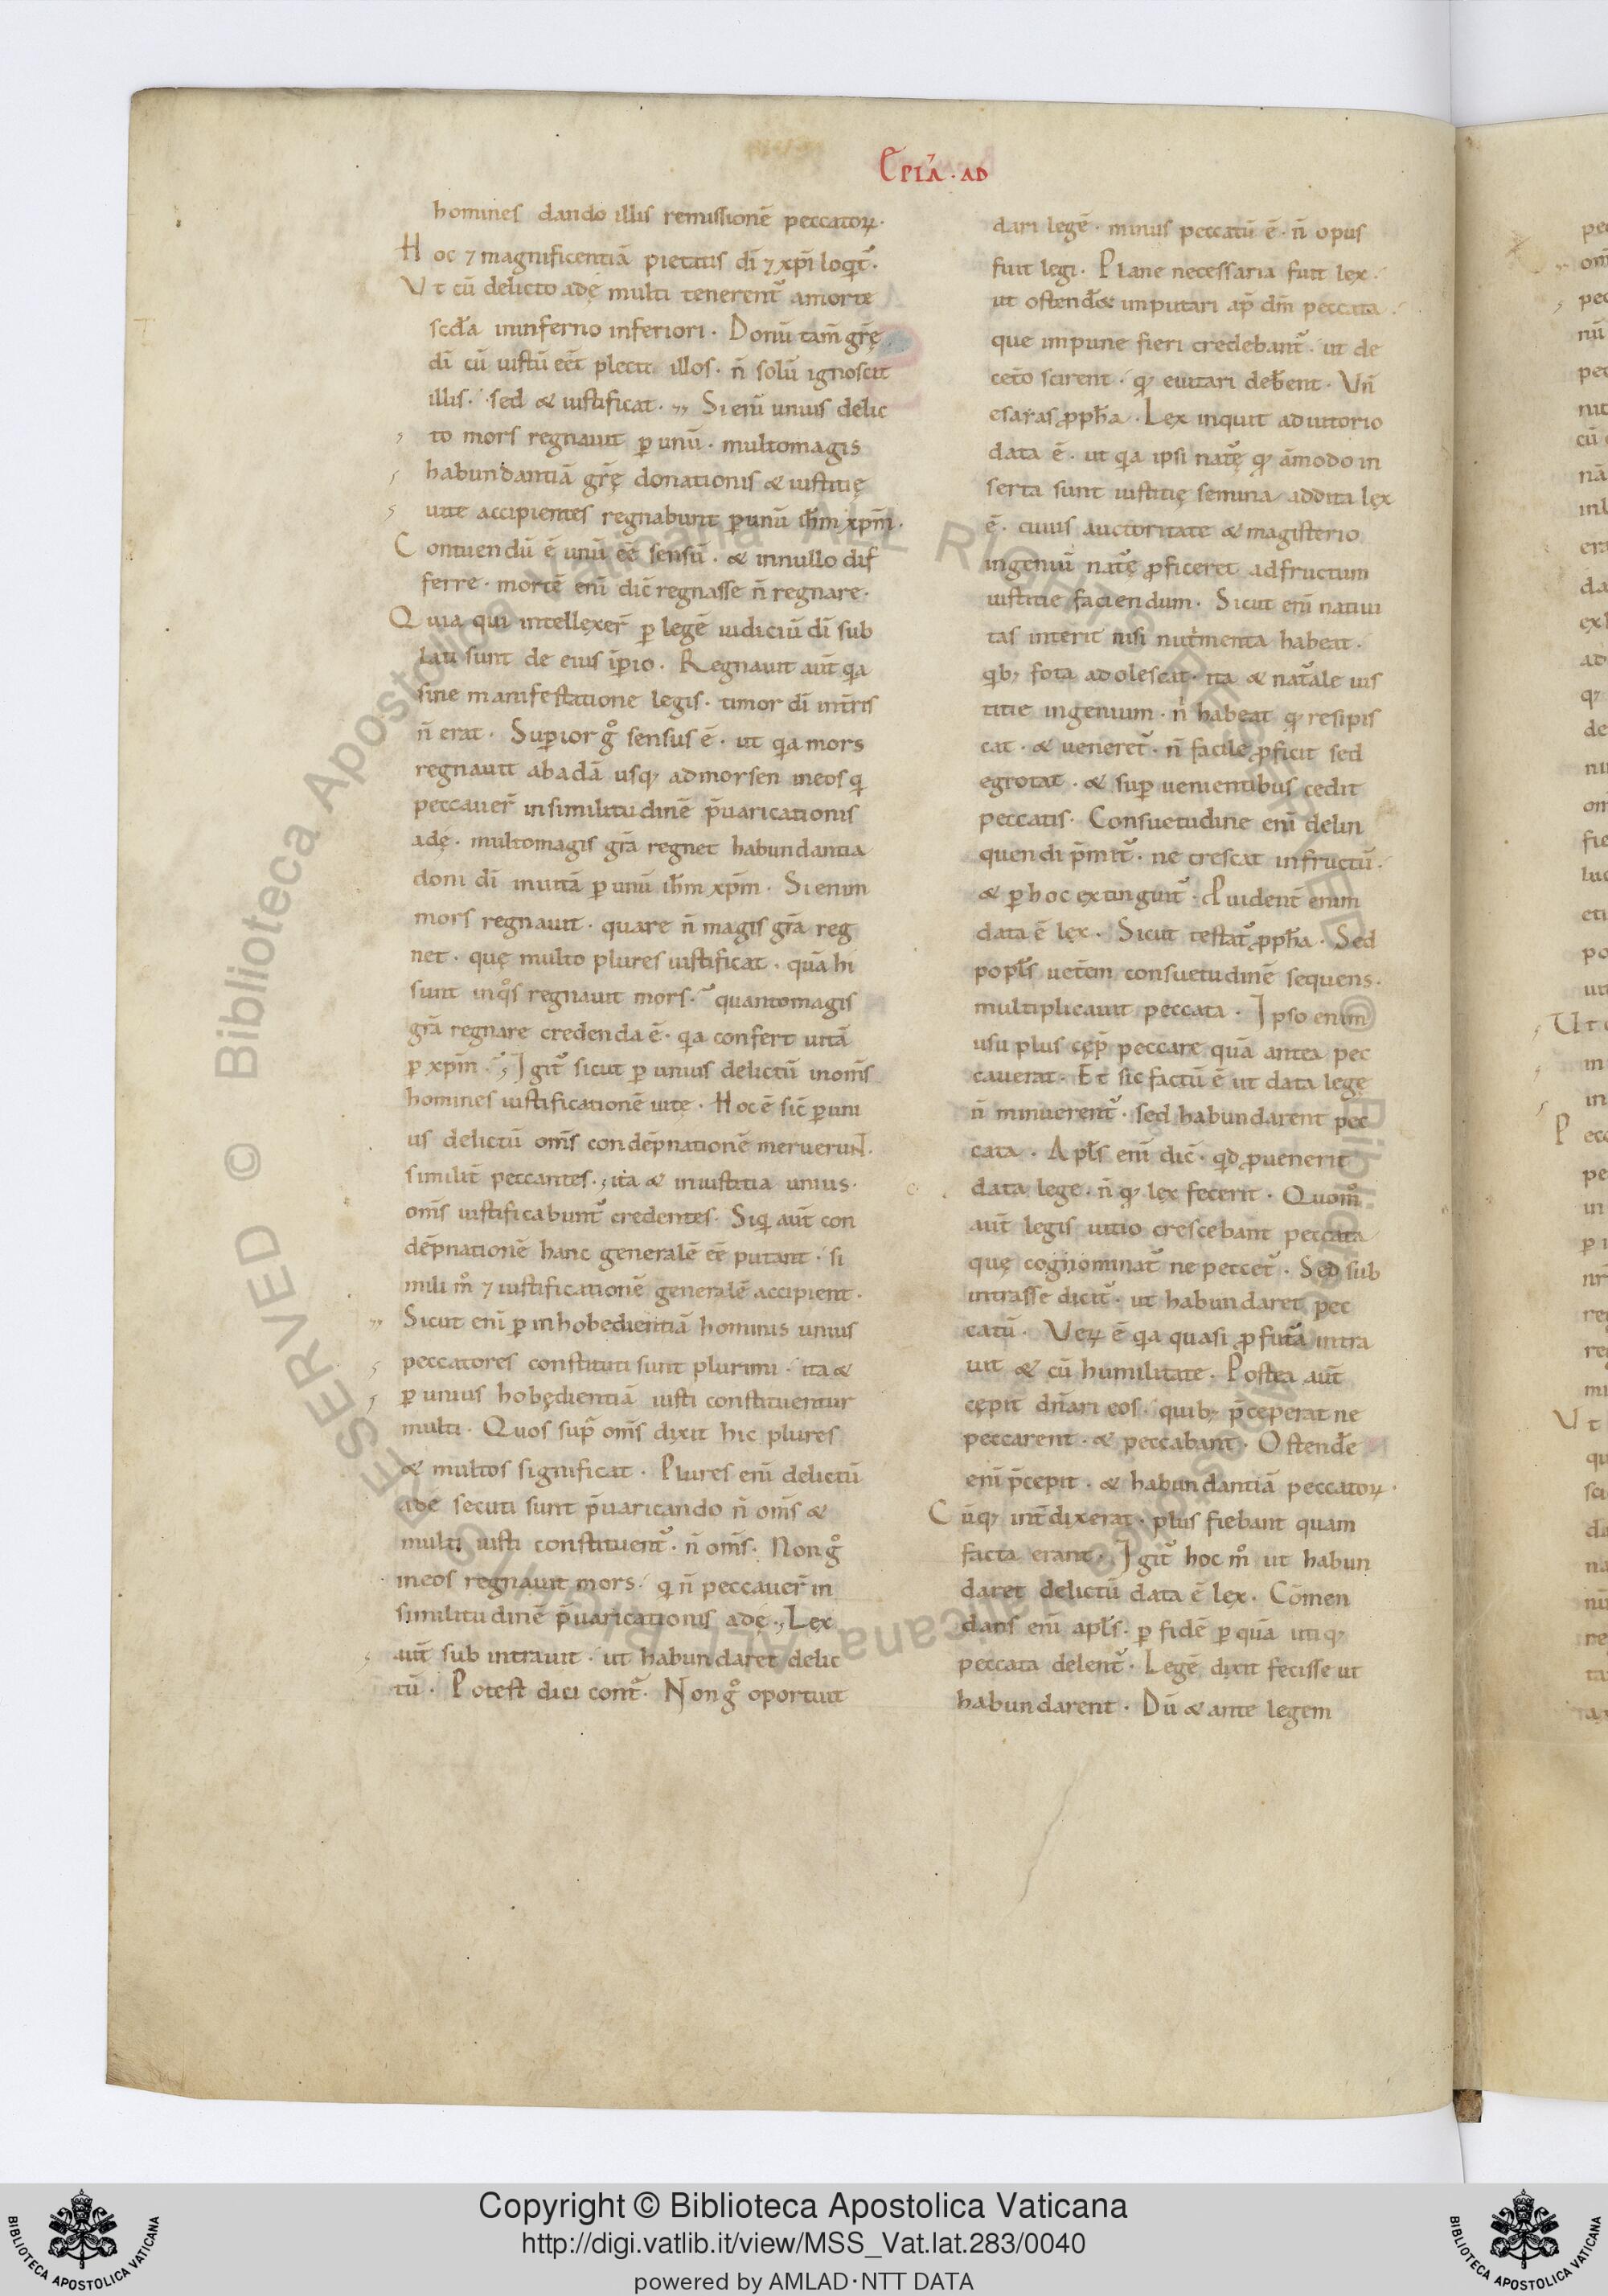 Ep̄ła · ad
homines dando illis remissionē peccatoꝝ ·
Hoc ⁊ magnificentiā pietatis dī ⁊ xp̄i loqt᷑ ·
Ut cū delicto adę multi tenerent᷑ amorte
scd̄a ininferno inferiori · Donū tam̄ gr̄ę
dī cū iustū eēt plecti illos · n̄ solū ignoscit
illis · sed & iustificat · Si enī unius delic
to mors regnauit ꝑ unū · multomagis
habundantiā gr̄ę donationis & iustitię
uite accipientes regnabunt ꝑunū ih̄m xp̄m ·
Contuendū ē unū eē sensū · & innullo dif
ferre · mortē enī dic̄ regnasse n̄ regnare ·
Quia qui intellexer̄ ꝑ legē iudiciū dī sub
lati sunt de eius īperio · Regnauit aut̄ qa
sine manifestatione legis · timor dī int̄ris
n̄ erat · Supior gͦ sensus ē · ut qa mors
regnauit abadā usqꝫ admorsen ineos q
peccauer̄ insimilitudinē p̄uaricationis
adę · multomagis gr̄a regnet habundantia
doni dī inuitā ꝑ unū ih̄m xp̄m · Si enim
mors regnauit · quare n̄ magis gr̄a reg
net · quę multo plures iustificat · quā hi
sunt inqͦs regnauit mors · quantomagis
gr̄a regnare credenda ē · qa confert uitā
ꝑ xp̄m · Igit᷑ sicut ꝑ unius delictū inom̄s
homines iustificationē uitę · Hoc ē sic̄ ꝑuni
us delictū om̄s condēpnationē meruerunt ·
similit̄ peccantes · ita & iniustitia unius ·
om̄s iustificabunt᷑ credentes · Siq aut̄ con
dēpnationē hanc generalē eē putant · si
mili mͦ ⁊ iustificationē generalē accipient ·
Sicut enī ꝑ inhobedientiā hominis unius
peccatores constituti sunt plurimi · ita &
ꝑ unius hobędientiā iusti constituentur
multi · Quos sup̄ om̄s dixit hic plures
& multos significat · Plures enī delictū
adę secuti sunt p̄uaricando n̄ om̄s &
multi iusti constituent᷑ · n̄ om̄s · Non gͦ
ineos regnauit mors · q n̄ peccauer̄ in
similitudinē p̄uaricationis adę · Lex
aut̄ sub intrauit · ut habundaret delic
tū · Potest dici cont᷑ · Non gͦ oportuit
dari legē · minus peccatū ē · n̄ opus
fuit legi · Plane necessaria fuit lex ·
ut ostend̄& imputari ap̄ dm̄ peccata ·
que impune fieri credebant᷑ · ut de
cet̄o scirent · qꝫ euitari deb̄ent · Un̄
esaias ꝓph̄a · Lex inquit adiutorio
data ē · ut qa ipsi nat᷑ę qꝫ ām̄odo in
serta sunt iustitię semina addita lex
ē · cuius auctoritate & magisterio
ingeniū nat᷑ę ꝓficeret adfructum
iustitie faciendum · Sicut enī natiui
tas interit nisi nut̄menta habeat ·
qbꝫ fota adolescat · ita & nat᷑ale ius
titie ingenium · n̄ habeat qꝫ resipis
cat · & ueneret᷑ · n̄ facile ꝓficit sed
egrotat · & sup uenientibus cedit
peccatis · Consuetudine enī delin
quendi p̄mit᷑ · ne crescat infructū ·
& ꝑ hoc extinguit᷑ · Puident̄ enim
data ē lex · Sicut testat᷑ ꝓph̄a · Sed
popl̄s uet̄em consuetudinē sequens ·
multiplicauit peccata · Ipso enim
usu plus cęp̄ peccare quā antea pec
cauerat · Et sic factū ē ut data lege
n̄ minuerent᷑ · sed habundarent pec
cata · Apl̄s enī dic̄ · qd ꝓuenerit
data lege · n̄ qꝫ lex fecerit · Quomͦ
aut̄ legis uitio crescebant peccata
quę cognominat᷑ ne peccet᷑ · Sed sub
intrasse dicit᷑ · ut habundaret pec
catū · Ueꝝ ē qa quasi ꝓfutā intra
uit & cū humilitate · Postea aut̄
cępit dn̄ari eos · quibꝫ p̄ceperat ne
peccarent · & peccabant · Ostend̄e
enī p̄cepit · & habundantiā peccatoꝝ ·
Cūqꝫ int̄dixerat · plus fiebant quam
facta erant · Igit᷑ hoc mͦ ut habun
daret delictū data ē lex · Cōmen
dans enī apl̄s · ꝑ fidē ꝑ quā utiqꝫ
peccata delent᷑ · Legē dixit fecisse ut
habundarent · Dū & ante legem
Copyright © Biblioteca Apostolica Vaticana
http://digi.vatlib.it/view/MSS_Vat.lat.283/0040
powered by AMLAD·NTT DATA
BIBLIOTECA APOSTOLICA VATICANA
BIBLIOTECA APOSTOLICA VATICANA